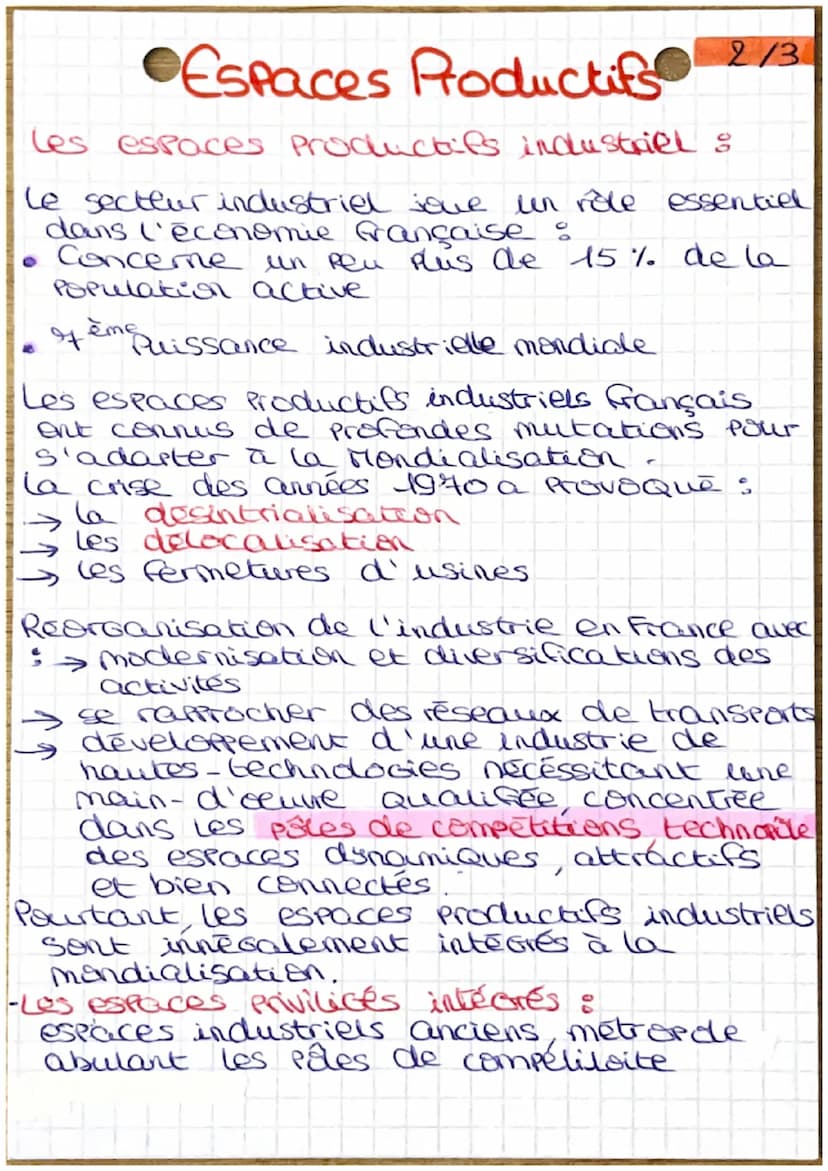 Espaces Productifs
2/3
Les espaces Productifs industriel :
Le secteur industriel joue un rôle essentiel
dans l'économie française :
• Concerne un peu plus de 15 % de la
Population active
• 7ème Puissance industrielle mondiale
Les espaces Productifs industriels français
ont connus de profondes mutations pour
s'adapter à la Mondialisation.
La crise des années 1970 a provoqué :
→ la désintrialisation
→ les délocalisation
→ les fermetures d'usines
Réorganisation de l'industrie en France avec
: → modernisation et diversifications des
activités
→ se rapprocher des réseaux de transports
→ développement d'une industrie de
hautes-technologies nécéssitant une
main-d'oeuvre qualifée, concentrée
dans les pôles de compétitions
des espaces dynamiques, attractifs
et bien connectés.
Pourtant, les espaces productifs industriels
sont innégalement intégrés à la
mondialisation.
-Les espaces priviligés intégrés :
espaces industriels anciens, métropole
les pôles de